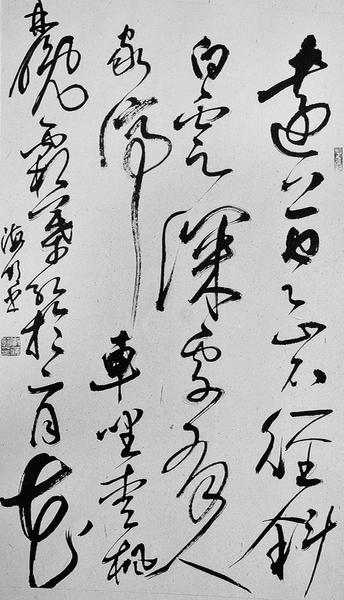 遠上寒山石徑斜
白雲深處有人
家停車坐愛楓
林晚霜葉紅於二月花
海